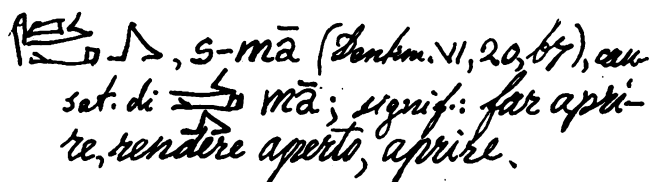 , s-mā (Denkm. VI, 20, 67), cau-
sat. di mā; signif.: far apri-
re, rendere aperto, aprire.